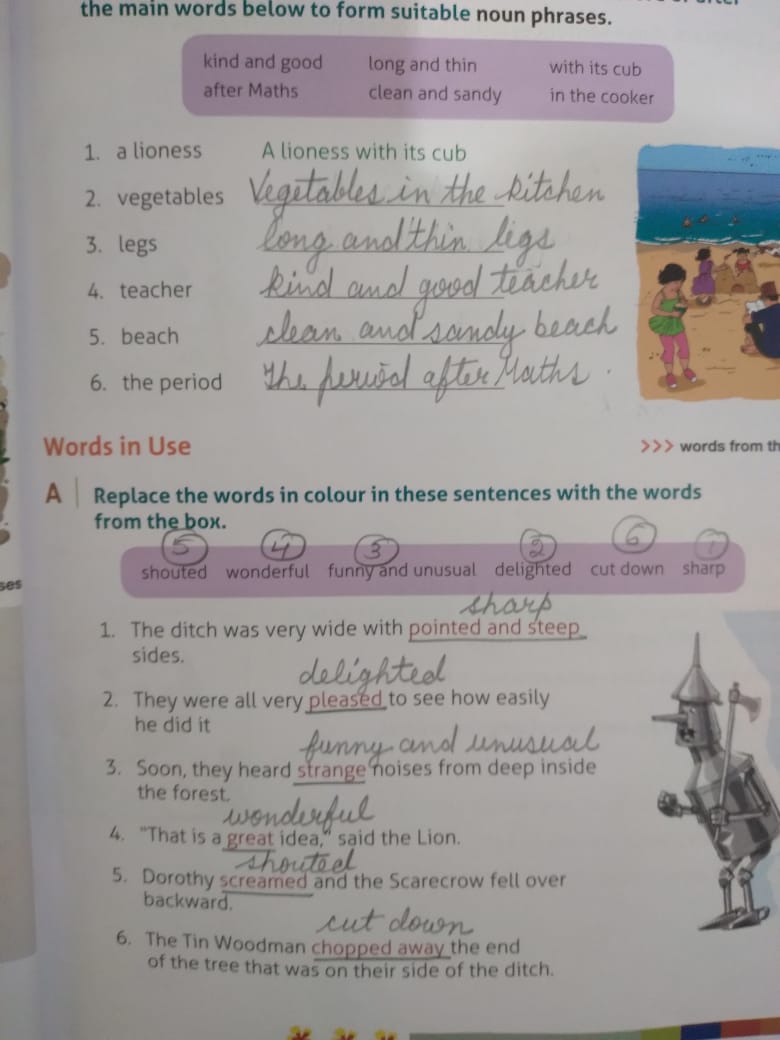 the main words below to form suitable noun phrases.
kind and good long and thin with its cub
after Maths clean and sandy in the cooker
1. a lioness A lioness with its cub
2. vegetables Vegetables in the kitchen
3. legs long and thin legs
4. teacher kind and good teacher
5. beach clean and sandy beach
6. the period The period after Maths.
Words in Use
>>> words from th
A Replace the words in colour in these sentences with the words
from the box.
5 4 3 2 6 1
shouted wonderful funny and unusual delighted cut down sharp
sharp
1. The ditch was very wide with pointed and steep
sides.
delighted
2. They were all very pleased to see how easily
he did it
funny and unusual
3. Soon, they heard strange noises from deep inside
the forest.
wonderful
4. "That is a great idea," said the Lion.
shouted
5. Dorothy screamed and the Scarecrow fell over
backward.
cut down
6. The Tin Woodman chopped away the end
of the tree that was on their side of the ditch.